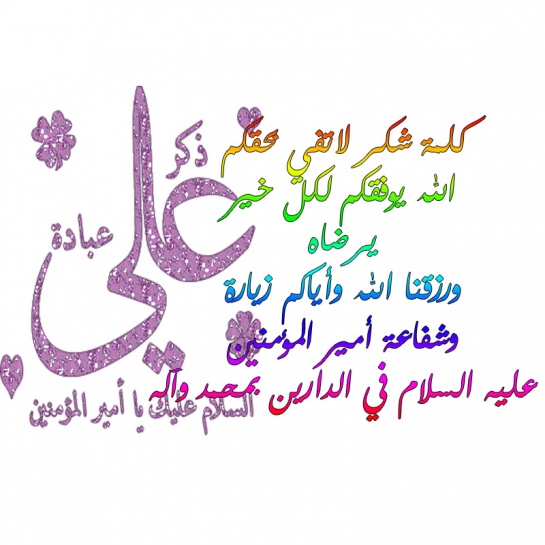 ذكر
علي
عبادة
السلام عليك يا أمير المؤمنين
كلمة شكر لاتفي بحقكم
الله يوفقكم لكل خير
يرضاه
ورزقنا الله وأياكم زيارة
وشفاعة أمير المؤمنين
عليه السلام في الدارين بمحمد وآله